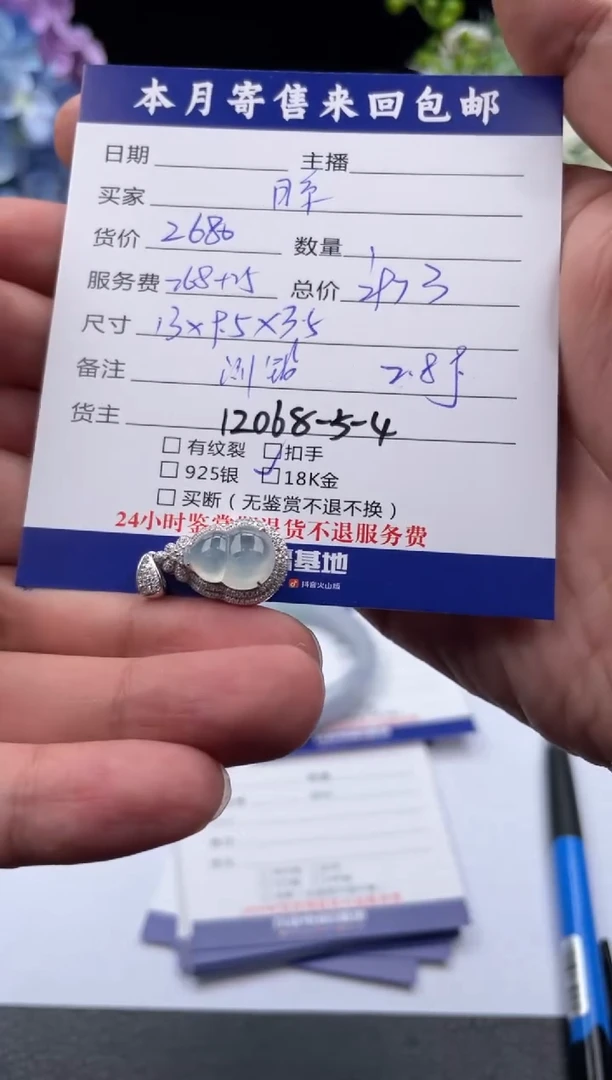 本月寄售来回包邮
日期 主播
买家
货价 2680 数量 1
服务费 268+25 总价 2973
尺寸 13×9.5×3.5
备注 2.8手
货主 12068-5-4
□ 有纹裂 □扣手
□ 925银 □ 18K金
□ 买断（无鉴赏不退不换）
24小时鉴赏期退货不退服务费
基地
抖音火山版